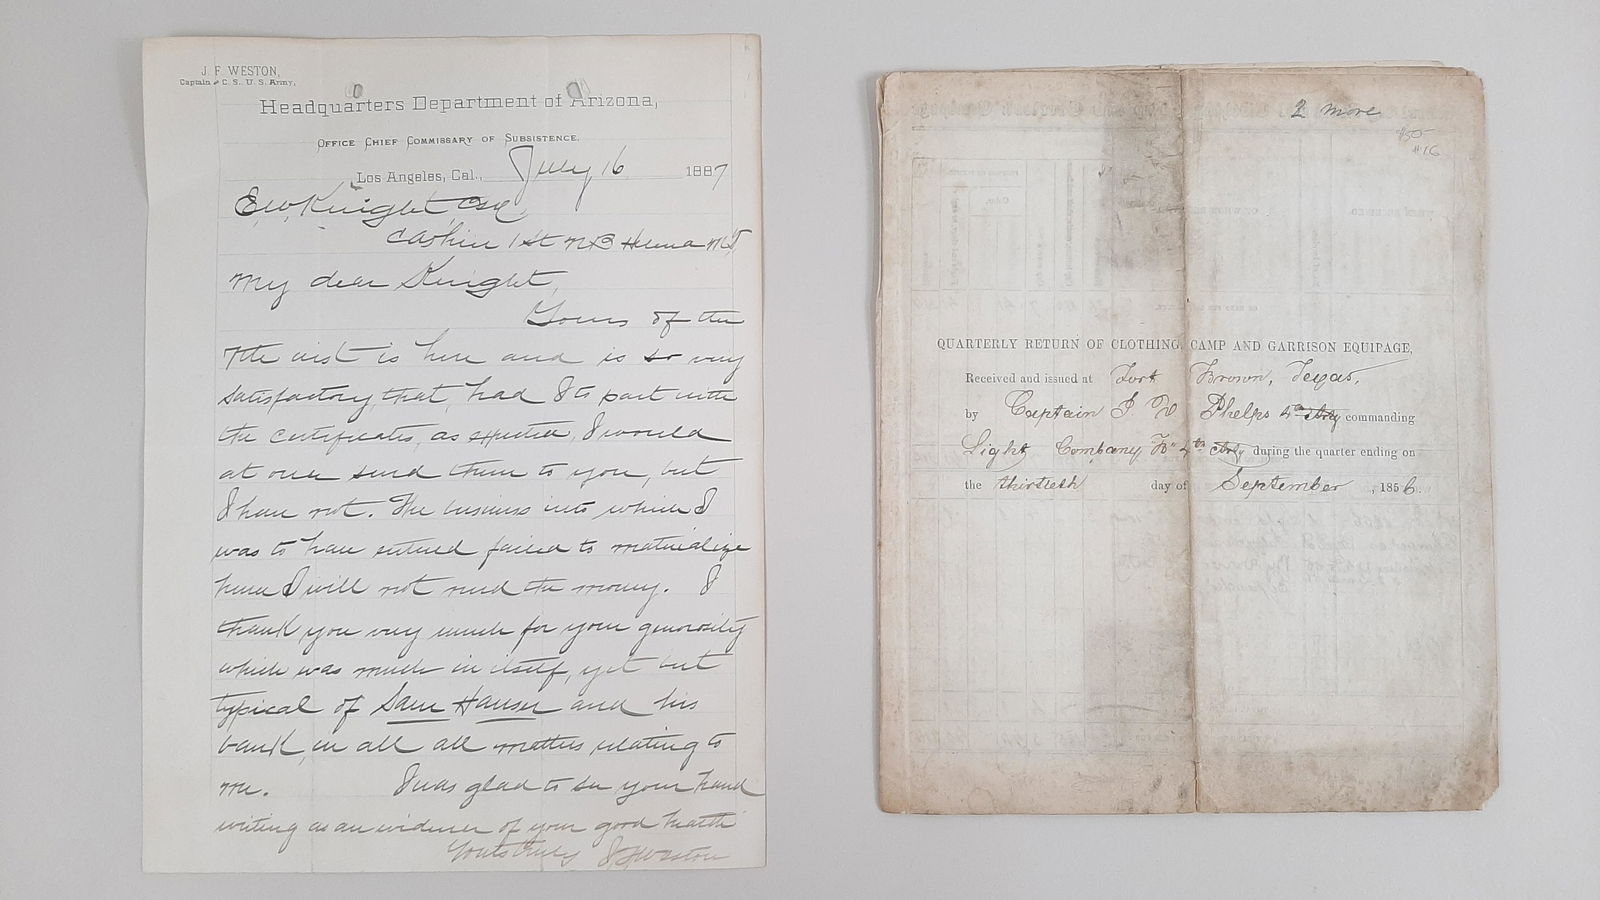 J. F. WESTON,
Captain and C. S. U. S. Army,
Headquarters Department of Arizona,
OFFICE CHIEF COMMISSARY OF SUBSISTENCE.
Los Angeles, Cal., July 16 1887
E W Knight, Esq,
Cashier 1st NB Helena MT
My dear Knight,
Yours of the
7th inst is here and is so very
satisfactory, that, had I to part with
the certificates, as expected, I would
at once send them to you, but
I have not. The business into which I
was to have entered failed to materialize
hence I will not need the money. I
thank you very much for your generosity
which was much in itself, yet but
typical of Sam Hauser and his
bank, in all all matters relating to
me. I was glad to see your hand
writing as an evidence of your good health
Yours truly J F Weston
2 more
$50
#16
QUARTERLY RETURN OF CLOTHING, CAMP AND GARRISON EQUIPAGE,
Received and issued at Fort Brown, Texas,
by Captain J W Phelps 4th Arty commanding
Light Company "B" 4th Arty during the quarter ending on
the thirtieth day of September, 1856.